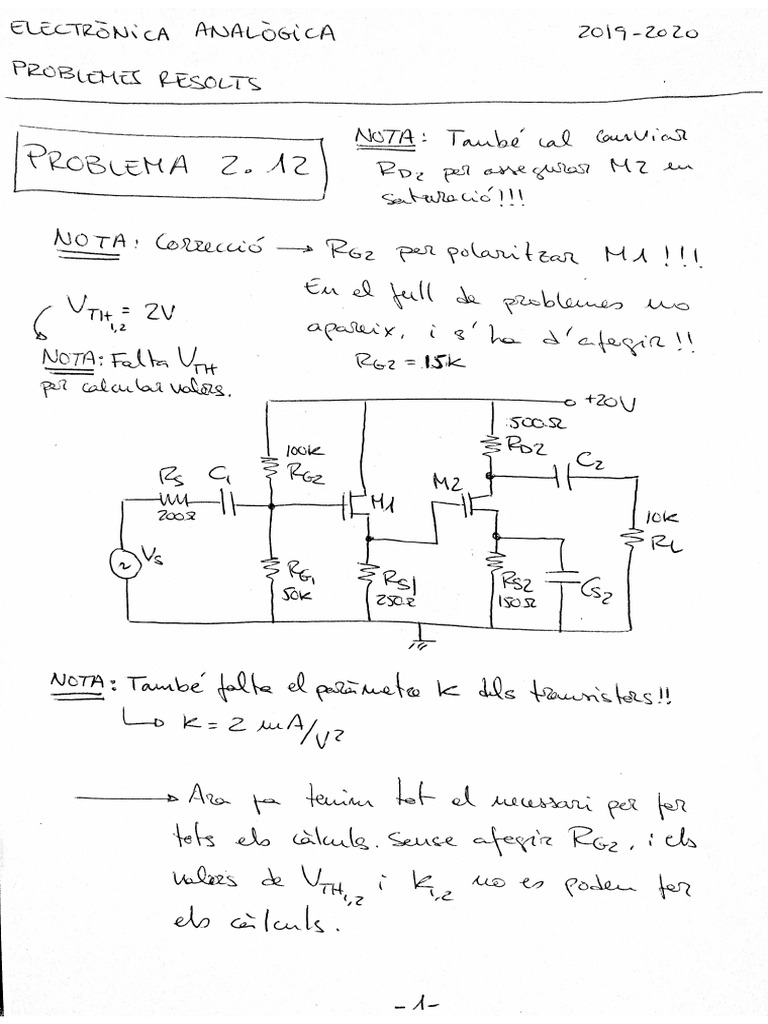 ELECTRÒNICA ANALÒGICA 2019-2020
PROBLEMES RESOLTS
PROBLEMA 2.12
NOTA: També cal canviar
RD2 per assegurar M2 en
saturació!!!
NOTA: Correcció → RG2 per polaritzar M1!!!
En el full de problemes no
apareix, i s'ha d'afegir!!
RG2 = 15K
VTH1,2 = 2V
NOTA: Falta VTH
per calcular valors.
+20V
500Ω
RD2
100K
RG2
C2
RS
200Ω
C1
M1
M2
10K
RL
VS
RG1
50K
RS1
250Ω
RS2
150Ω
CS2
NOTA: També falta el paràmetre K dels transistors!!
↳ K = 2 mA/V²
→ Ara ja tenim tot el necessari per fer
tots els càlculs. Sense afegir RG2, i els
valors de VTH1,2 i K1,2 no es poden fer
els càlculs.
-1-